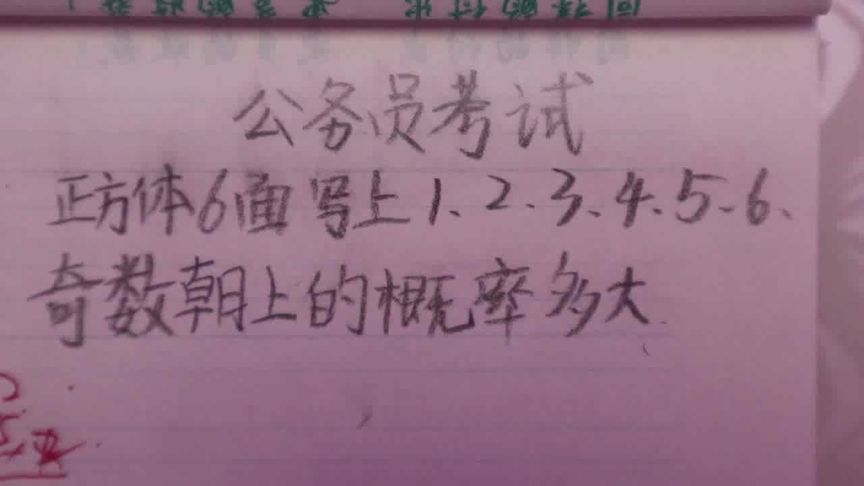 公务员考试
正方体6面写上1、2、3、4、5、6、
奇数朝上的概率多大